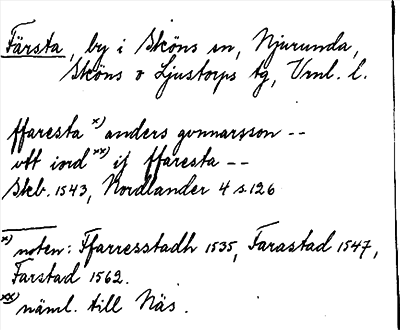 Färsta, by i Sköns sn, Njurunda,
Sköns o Ljustorps tg, Vml. l.
ffaresta x) anders gonnarsson --
ott ind xx) ij ffaresta --
Skb. 1543, Nordlander 4 s. 126
x) noten: Ffarresstadh 1535, Farastad 1547,
Farstad 1562.
xx) näml. till Näs.